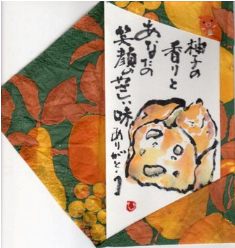 柚子の
香りと
あなたの
笑顔の苦い味
ありがとう